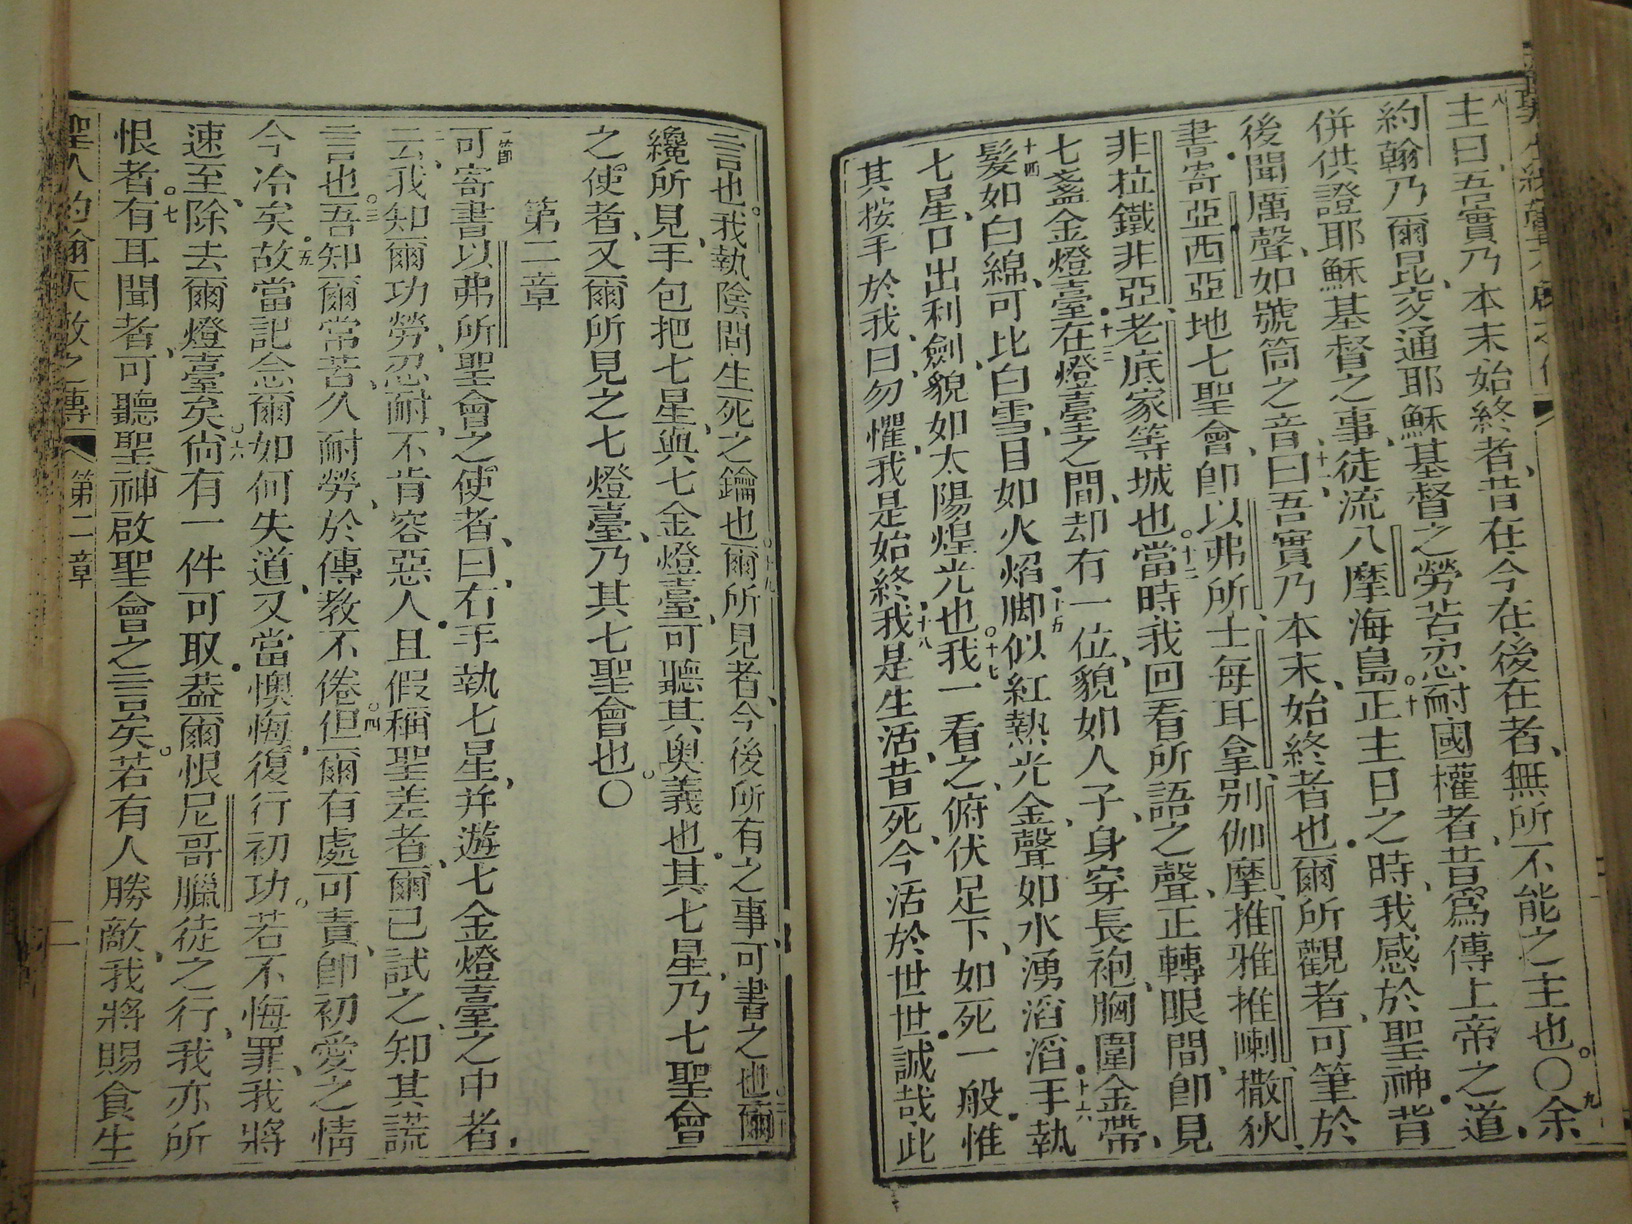 八
主曰、吾實乃本末始終者、昔在今在後在者、無所不能之主也。〇余九
約翰乃爾昆、交通耶穌基督之勞苦忍耐國權者、昔爲傳上帝之道、
併供證耶穌基督之事、徒流八摩海島。十正主日之時、我感於聖神、背
後聞厲聲、如號筒之音、十一曰、吾實乃本末、始終者也、爾所觀者、可筆於
書、寄亞西亞地七聖會、卽以弗所、士每耳拿、別伽摩、推雅推喇、撒狄、
非拉鐵非亞、老底家等城也。十二當時、我回看所語之聲、正轉眼間、卽見
七盞金燈臺、十三在燈臺之間、却有一位、貌如人子、身穿長袍、胸圍金帶、
十四髮如白綿、可比白雪、目如火焰、十五脚似紅熱光金、聲如水湧滔滔、十六手執
七星、口出利劍、貌如太陽煌光也。十七我一看之、俯伏足下、如死一般、惟
其按手於我、曰、勿懼、我是始終、十八我是生活、昔死、今活於世世、誠哉、此
言也。我執陰間生死之鑰也。十九爾所見者、今後所有之事、可書之也。二十爾
纔所見、手包把七星、與七金燈臺、可聽其奧義也。其七星、乃七聖會
之使者、又爾所見之七燈臺、乃其七聖會也。〇
第二章
一節
可寄書以弗所聖會之使者、曰、右手執七星、并遊七金燈臺之中者、
二云、我知爾功勞、忍耐、不肯容惡人、且假稱聖差者、爾已試之、知其謊
言也。三吾知爾常苦、久耐勞、於傳教不倦。四但爾有處可責、卽初愛之情
今冷矣。五故當記念爾如何失道、又當懊悔、復行初功。若不悔罪、我將
速至、除去爾燈臺矣。六尙有一件可取、葢爾恨尼哥臘徒之行、我亦所
恨者。七有耳聞者、可聽聖神啟聖會之言矣。若有人勝敵、我將賜食生
聖人約翰天啟之傳 第二章 二